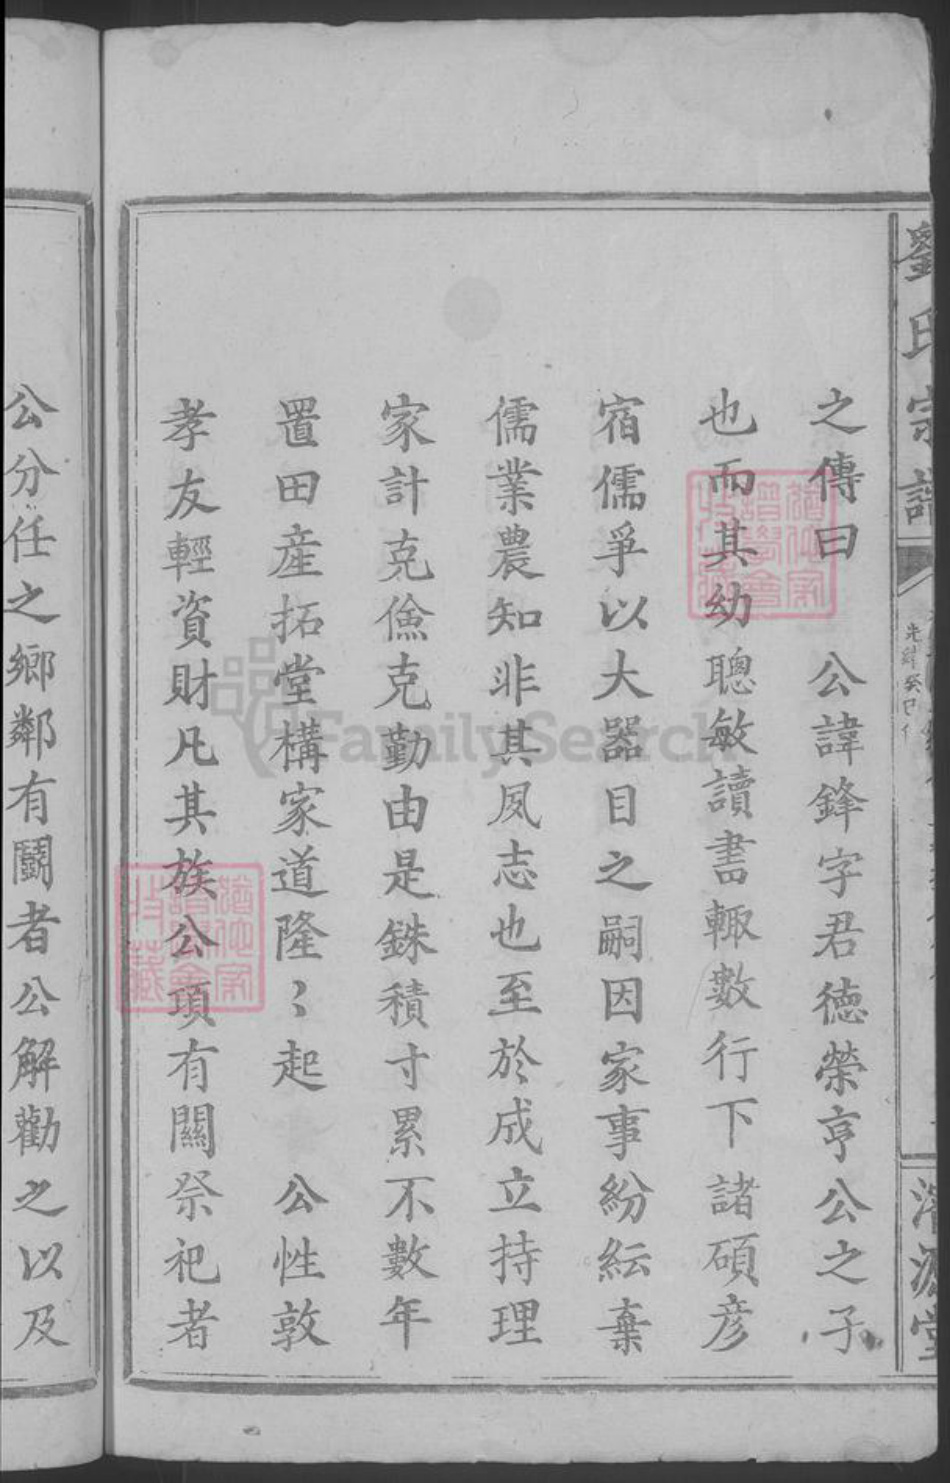 劉氏宗譜
光緒癸巳
濬源堂
之傳曰　公諱鋒字君德榮亨公之子
也而其幼聰敏讀書輙數行下諸碩彦
宿儒爭以大器目之嗣因家事紛紜棄
儒業農知非其夙志也至於成立持理
家計克儉克勤由是銖積寸累不數年
置田產拓堂構家道隆〻起　公性敦
孝友輕資財凡其族公項有關祭祀者
公分任之鄉鄰有鬬者公解勸之以及
FamilySearch